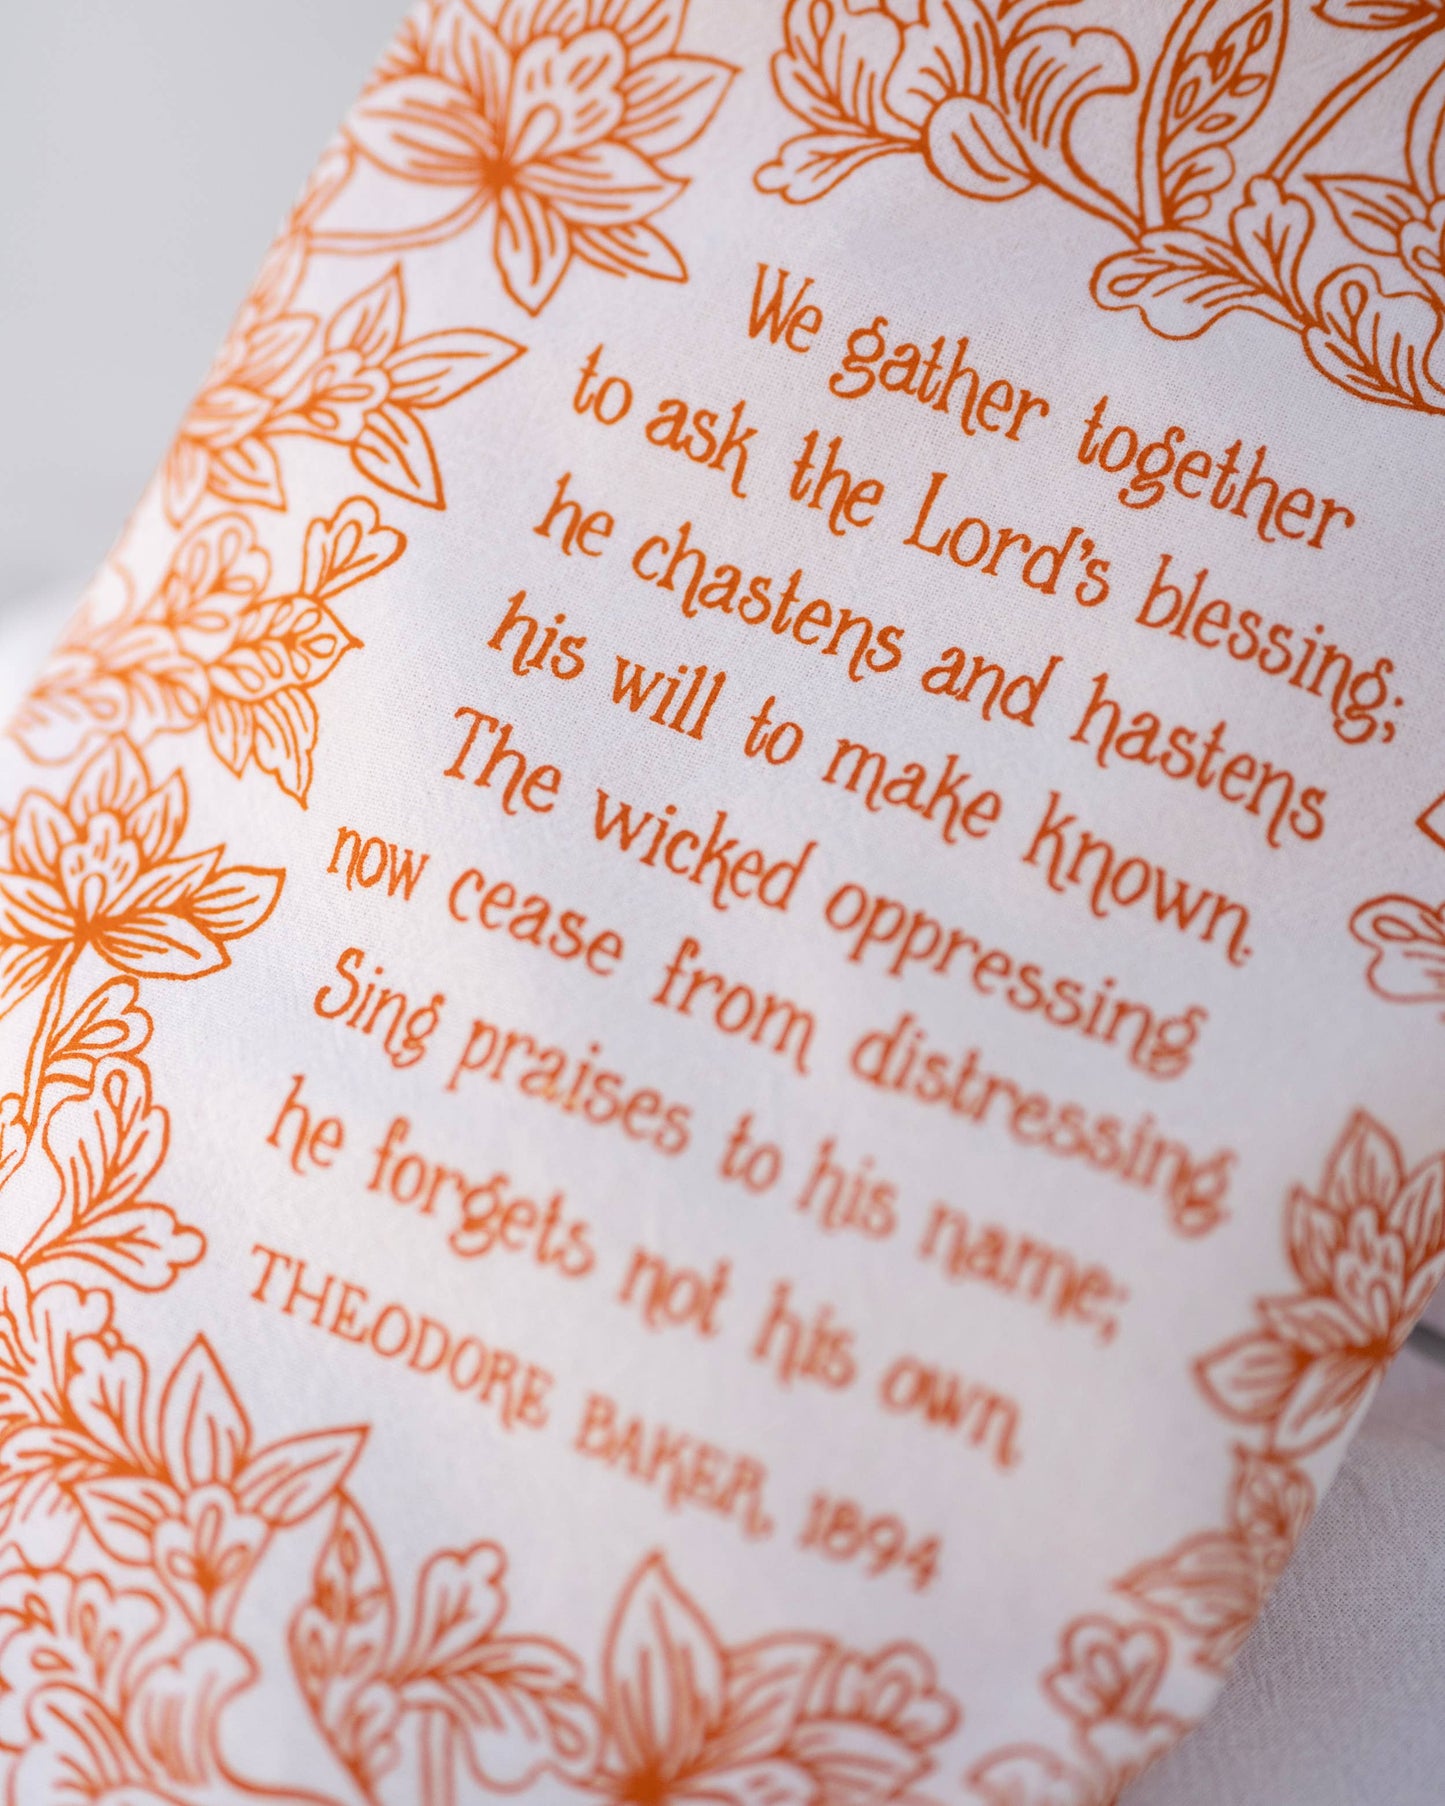 We gather together
to ask the Lord's blessing;
he chastens and hastens
his will to make known.
The wicked oppressing
now cease from distressing.
Sing praises to his name;
he forgets not his own.
THEODORE BAKER, 1894